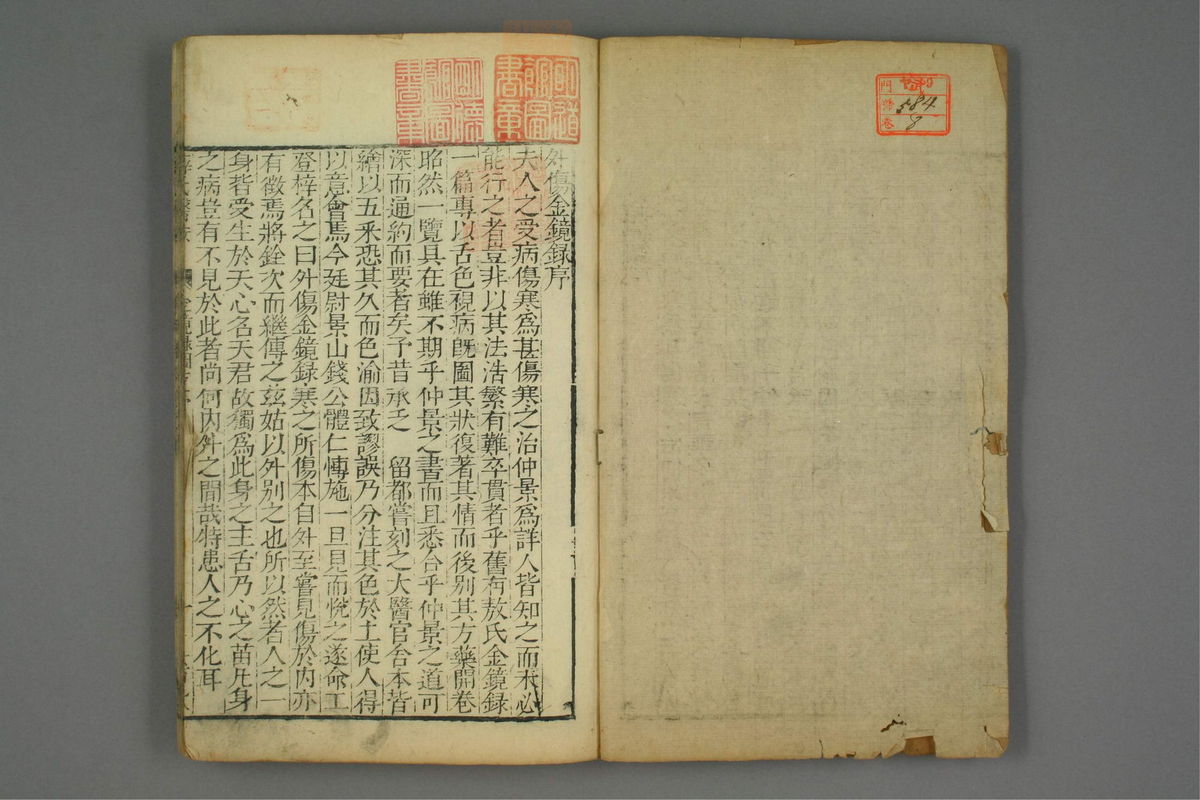 584
8
外傷金鏡録序
夫人之受病傷寒爲甚傷寒之治仲景爲詳人皆知之而未必
能行之者豈非以其法浩繁有難卒貫者乎舊有敖氏金鏡録
一篇專以舌色視病旣圖其狀復著其情而後別其方藥開卷
昭然一覽具在雖不期乎仲景之書而且悉合乎仲景之道可
深而通約而要者矣予昔承乏 留都嘗刻之太醫官舍本皆
繪以五采恐其久而色渝因致謬誤乃分注其色於上使人得
以意會焉今廷尉景山錢公體仁慱施一旦見而悅之遂命工
登梓名之曰外傷金鏡録寒之所傷本自外至嘗見傷於内亦
有徵焉將銓次而繼傳之玆姑以外别之也所以然者人之一
身皆受生於天心名天君故獨爲此身之主舌乃心之苗凡身
之病豈有不見於此者尚何内外之間哉特患人之不化耳